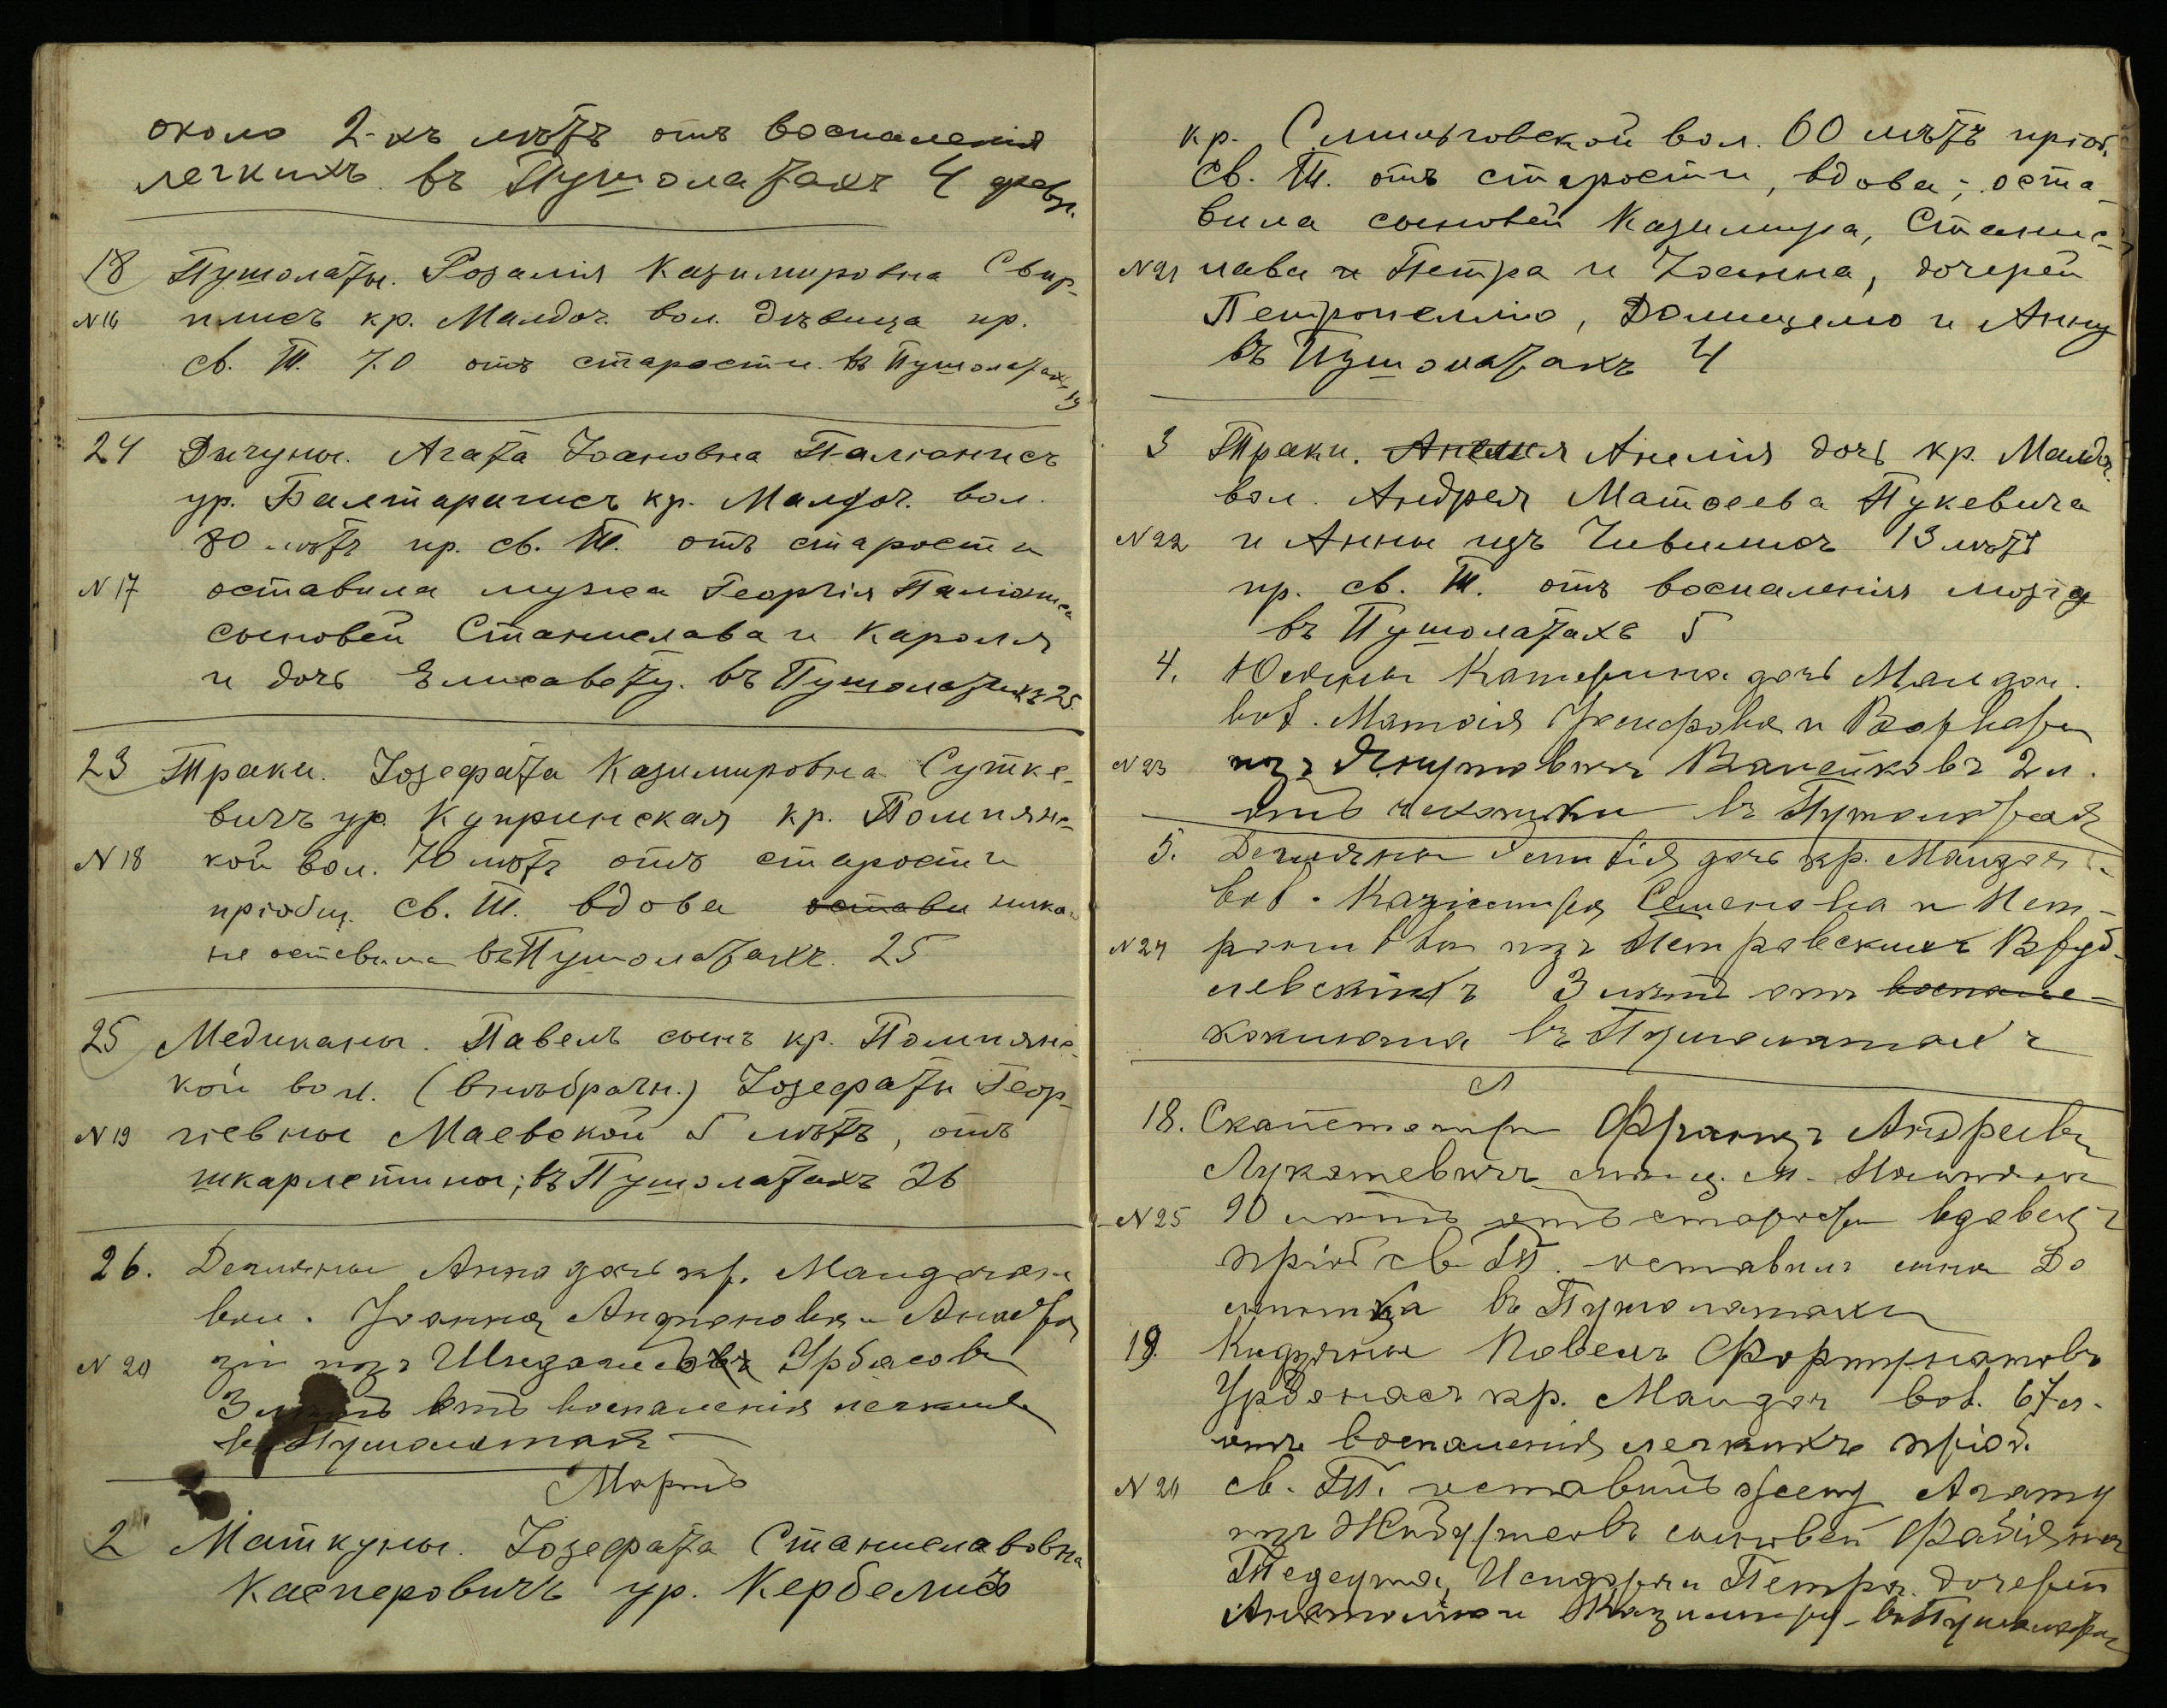 около 2-хъ лѣтъ отъ воспаленія
легкихъ въ Пушолатахъ 4 февр.
18 Пушолаты. Розалія Казимировна Свир-
N 16 плисъ кр. Малдоч. вол. дѣвица пр.
св. Т. 70 отъ старости въ Пушолатахъ 19
24 Дичуны. Агата Іоановна Паліонисъ
ур. Балтарагисъ кр. Малдоч. вол.
80 лѣтъ пр. св. Т. отъ старости
N 17 оставила мужа Георгія Паліониса
сыновей Станислава и Кароля
и дочь Елисавету. въ Пушолатахъ 25
23 Траки. Іозефата Казимировна Сутке-
вичъ ур. Купринская кр. Помпянс-
N 18 кой вол. 70 лѣтъ отъ старости
пріобщ. св. Т. вдова остави никого
не оставила въ Пушолатахъ. 25
25 Медиканы. Павелъ сынъ кр. Помпянс-
кой вол. (внѣбрачн.) Іозефаты Геор-
N 19 гіевны Маевской 5 лѣтъ, отъ
шкарлетины; въ Пушолатахъ 26
26. Анна дочь кр. Малдочск
вол. Іоанна и
N 20 изъ Урбасовъ
3 лѣтъ отъ воспаленія легкихъ
въ Пушолатахъ
Мартъ
2 Маткуны. Іозефата Станиславовна
Касперовичъ ур. Кербелисъ
кр. Смильговской вол. 60 лѣтъ пріоб.
св. Т. отъ старости, вдова; оста-
вила сыновей Казимира, Станис-
N 21 лава и Петра и Іоанна, дочерей
Петронеллію, Домицелю и Анну
въ Пушолатахъ 4
3 Траки. Анеля Анелія дочь кр. Малдоч.
вол. Андрея Матѳеева Пукевича
N 22 и Анны изъ Чивилисъ 13 лѣтъ
пр. св. Т. отъ воспаленія мозга
въ Пушолатахъ 5
4. Юсяны Катерина дочь Малдоч.
вол. Матѳія и Варвары
N 23 изъ Янушевичъ 2 л.
отъ чихотки въ Пушолатахъ
5. дочь кр. Малдоч.
вол. Казиміра Семенова и Пет-
N 24 ронели изъ Петровскихъ Вруб-
левскихъ 3 лѣтъ отъ воспале-
коклюша въ Пушолатахъ
18. Францъ Андреевъ
Лукашевичъ мѣщ. м.
N 25 90 лѣтъ отъ старости вдовецъ
пріоб св Т. оставилъ сына До
миника въ Пушолатахъ
19. Кидзуны Павелъ Фортунатовъ
Урбонасъ кр. Малдоч вол. 67 л.
отъ воспаленія легкихъ пріоб.
N 26 св. Т. оставивъ жену Агату
изъ сыновей Фабіяна
Тадеуша, Исидора и Петра. дочерей
Анатолію и Казимиру въ Пушолатахъ